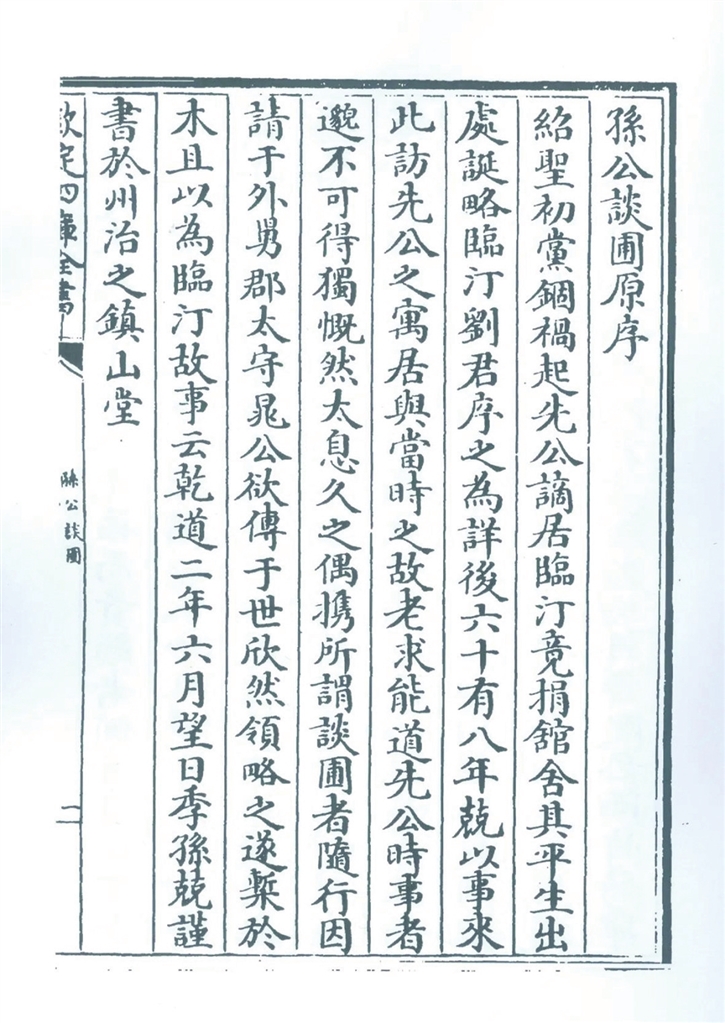 孫公談圃原序
紹聖初黨錮禍起先公謫居臨汀竟捐舘舍其平生出
處誕略臨汀劉君序之為詳後六十有八年兢以事來
此訪先公之寓居與當時之故老求能道先公時事者
邈不可得獨慨然太息久之偶携所謂談圃者隨行因
請于外舅郡太守晁公欲傳于世欣然領略之遂槧於
木且以為臨汀故事云乾道二年六月望日季孫兢謹
書於州治之鎮山堂
欽定四庫全書
孫公談圃
二